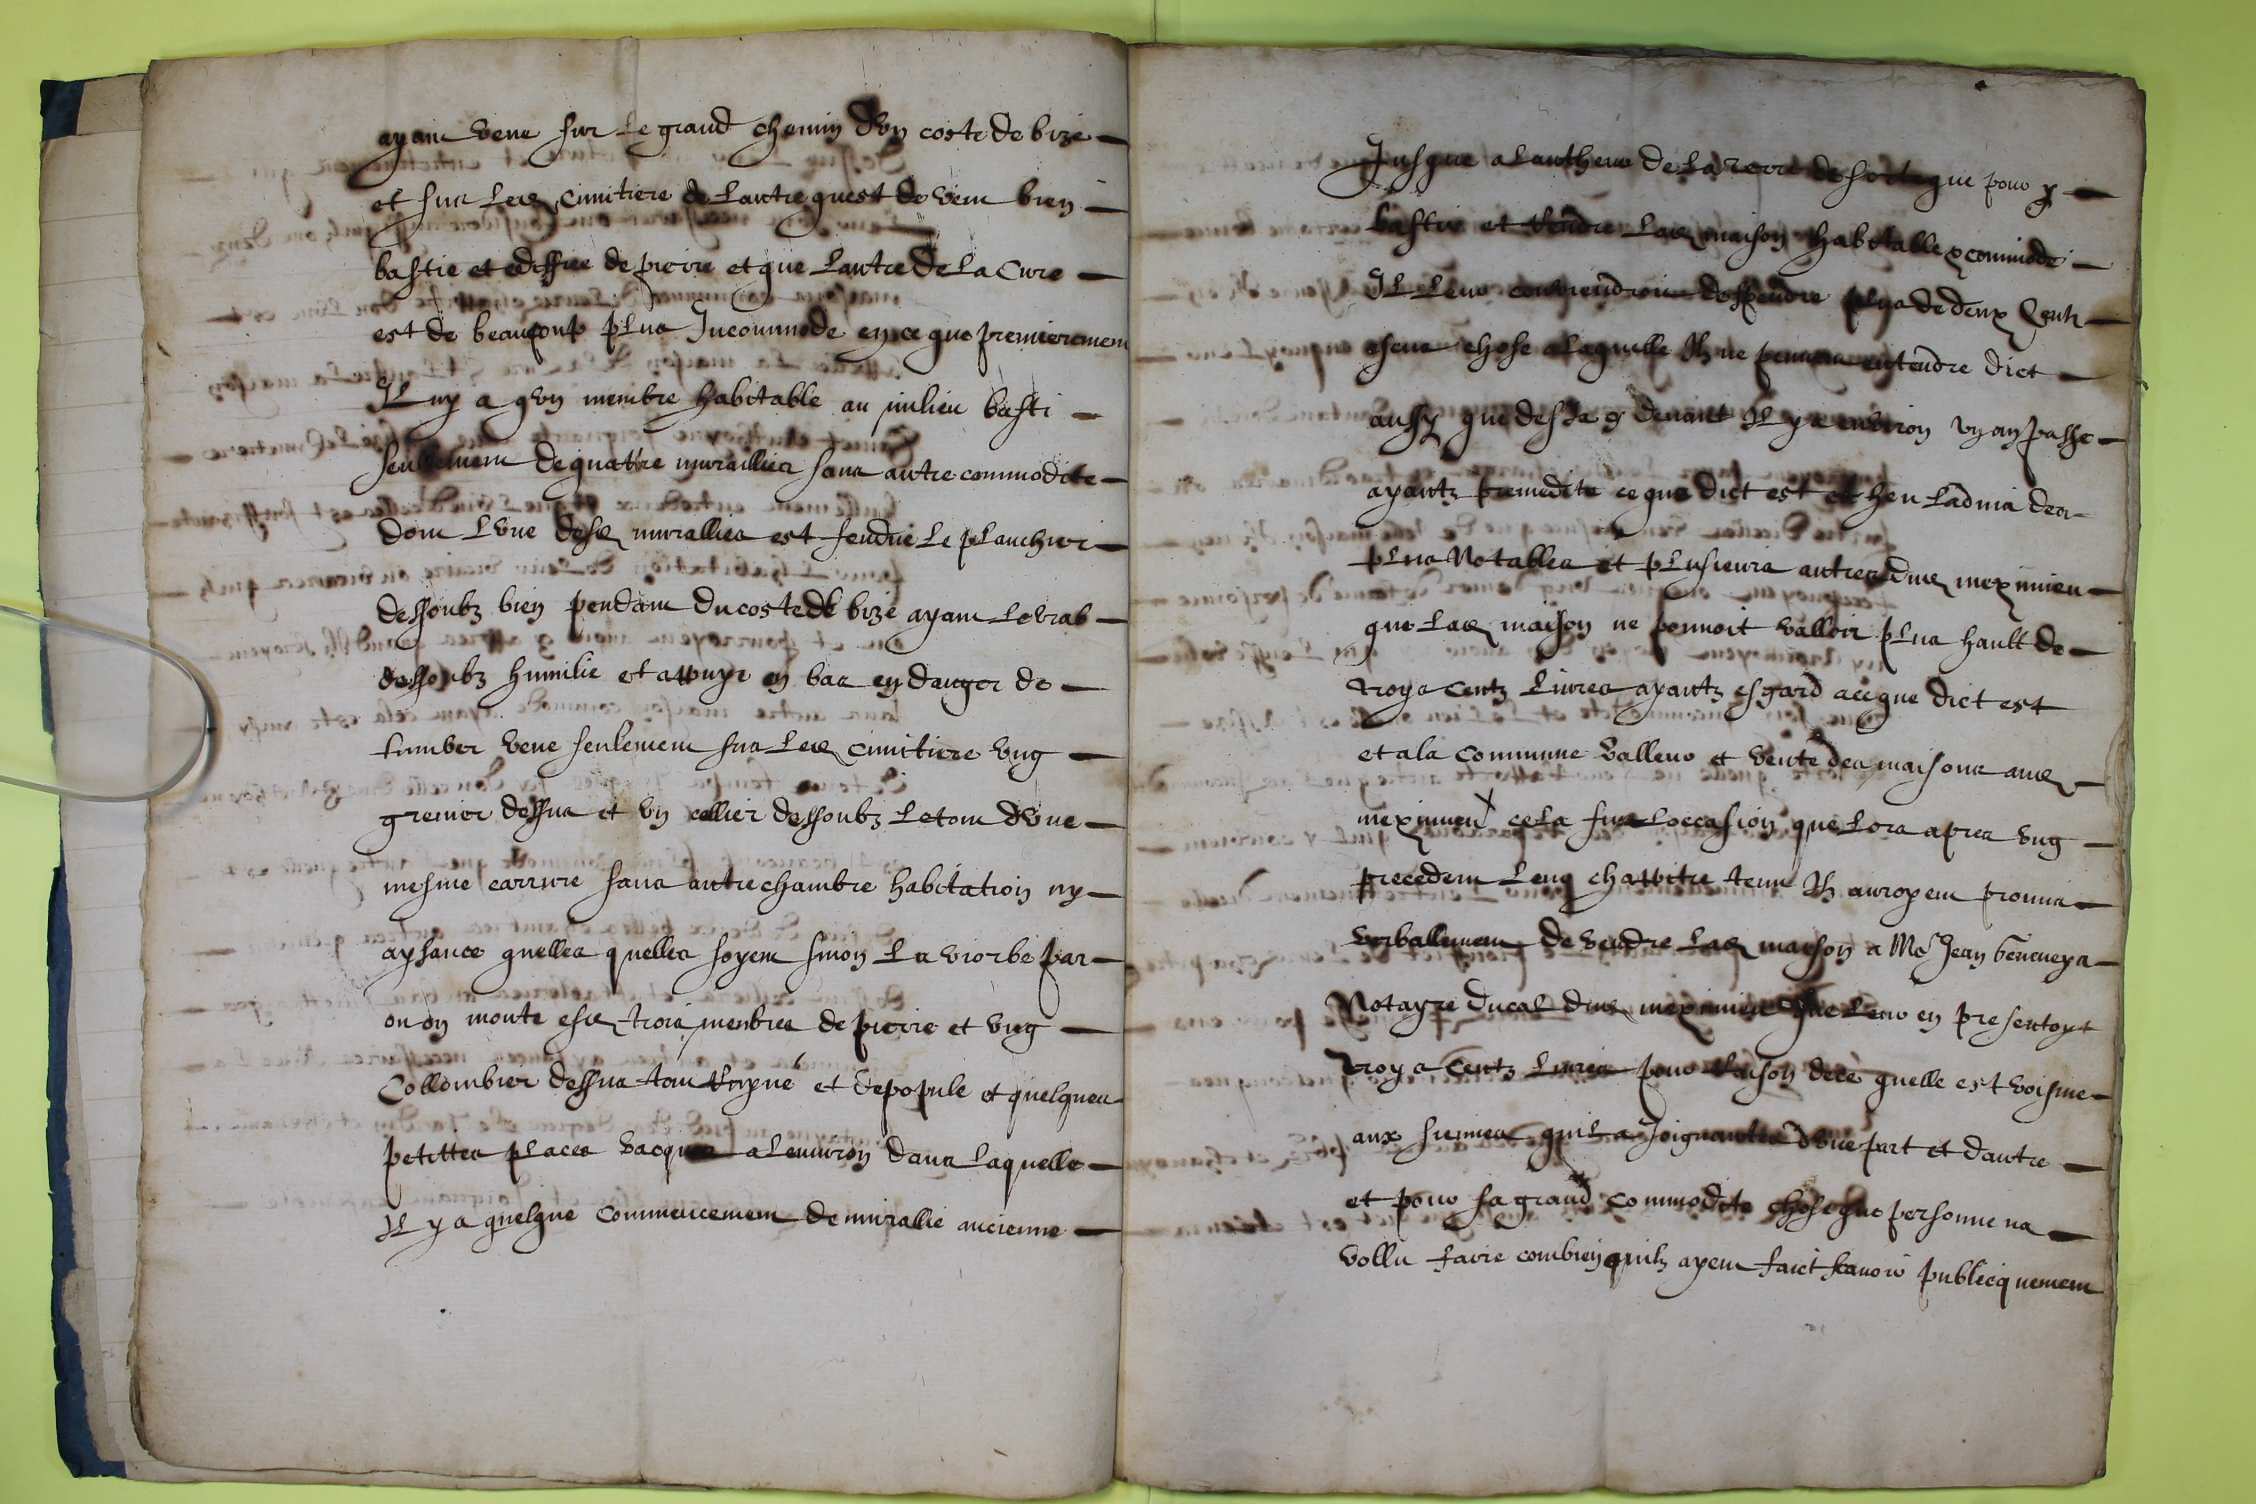 ayant veue sur le grand chemin dvng coste de bize
et sur led cimitiere de lautre quest de vent bien
bastie et ediffiee de pierre et que lautre de la Cure
est de beaucoup plus Incommode en ce que premierement
Il ny a qvn membre habitable au milieu basti
seullement de quattre murallies sans autre commodite
dont lvne desd murallies est fendue le planchier
dessoubz bien pendant du coste de bize ayant le trab
dessoubz humilie et appuye en bas en danger de
tumber veue seulement sus led cimitiere vng
grenier dessus et vn cellier dessoubz le tout dvne
mesme carrure sans autre chambre habitation ny
aysance quelles quelles soyent sinon la viorbe par
ou on monte esd trois menbres de pierre et vng
Collombier dessus tout ruyné et depopule et quelques
petittes places vacques a lenuiron dans laquelle
Il y a quelque commencement de murallie ancienne
Jusque a lautheur de la terre de sorte que pour y
bastir et rendre lad maison habitable & commode
Il leur conviendroit despendre plus de deux Centz
escus chose a laquelle Ilz ne peuuent entendre dict
aussy que desia cy deuant Il y a environ vn an passe
ayantz premedite ce que dict est et heu ladvis des
plus Notables et plusieurs autres dud meximieu
que lad maison ne pouuoit valloir plus hault de
troys centz liures ayantz esgard a ce que dict est
et a la commune valleur et vente des maisons aud
meximieu cela fust loccasion que lors apres vng
precedent leur chappitre tenu Ilz auroyent promis
verballement de vendre lad maison a Me Jean beneneys
Notayre ducal dud meximieu que leur en presentoyt
troys Centz liures pour raison de ce quelle est voisine
aux siennes quil a Joignantes dvne part et dautre
et pour sa grand commodite chose que personne na
vollu faire combien quilz ayent faict scauoir publicquement